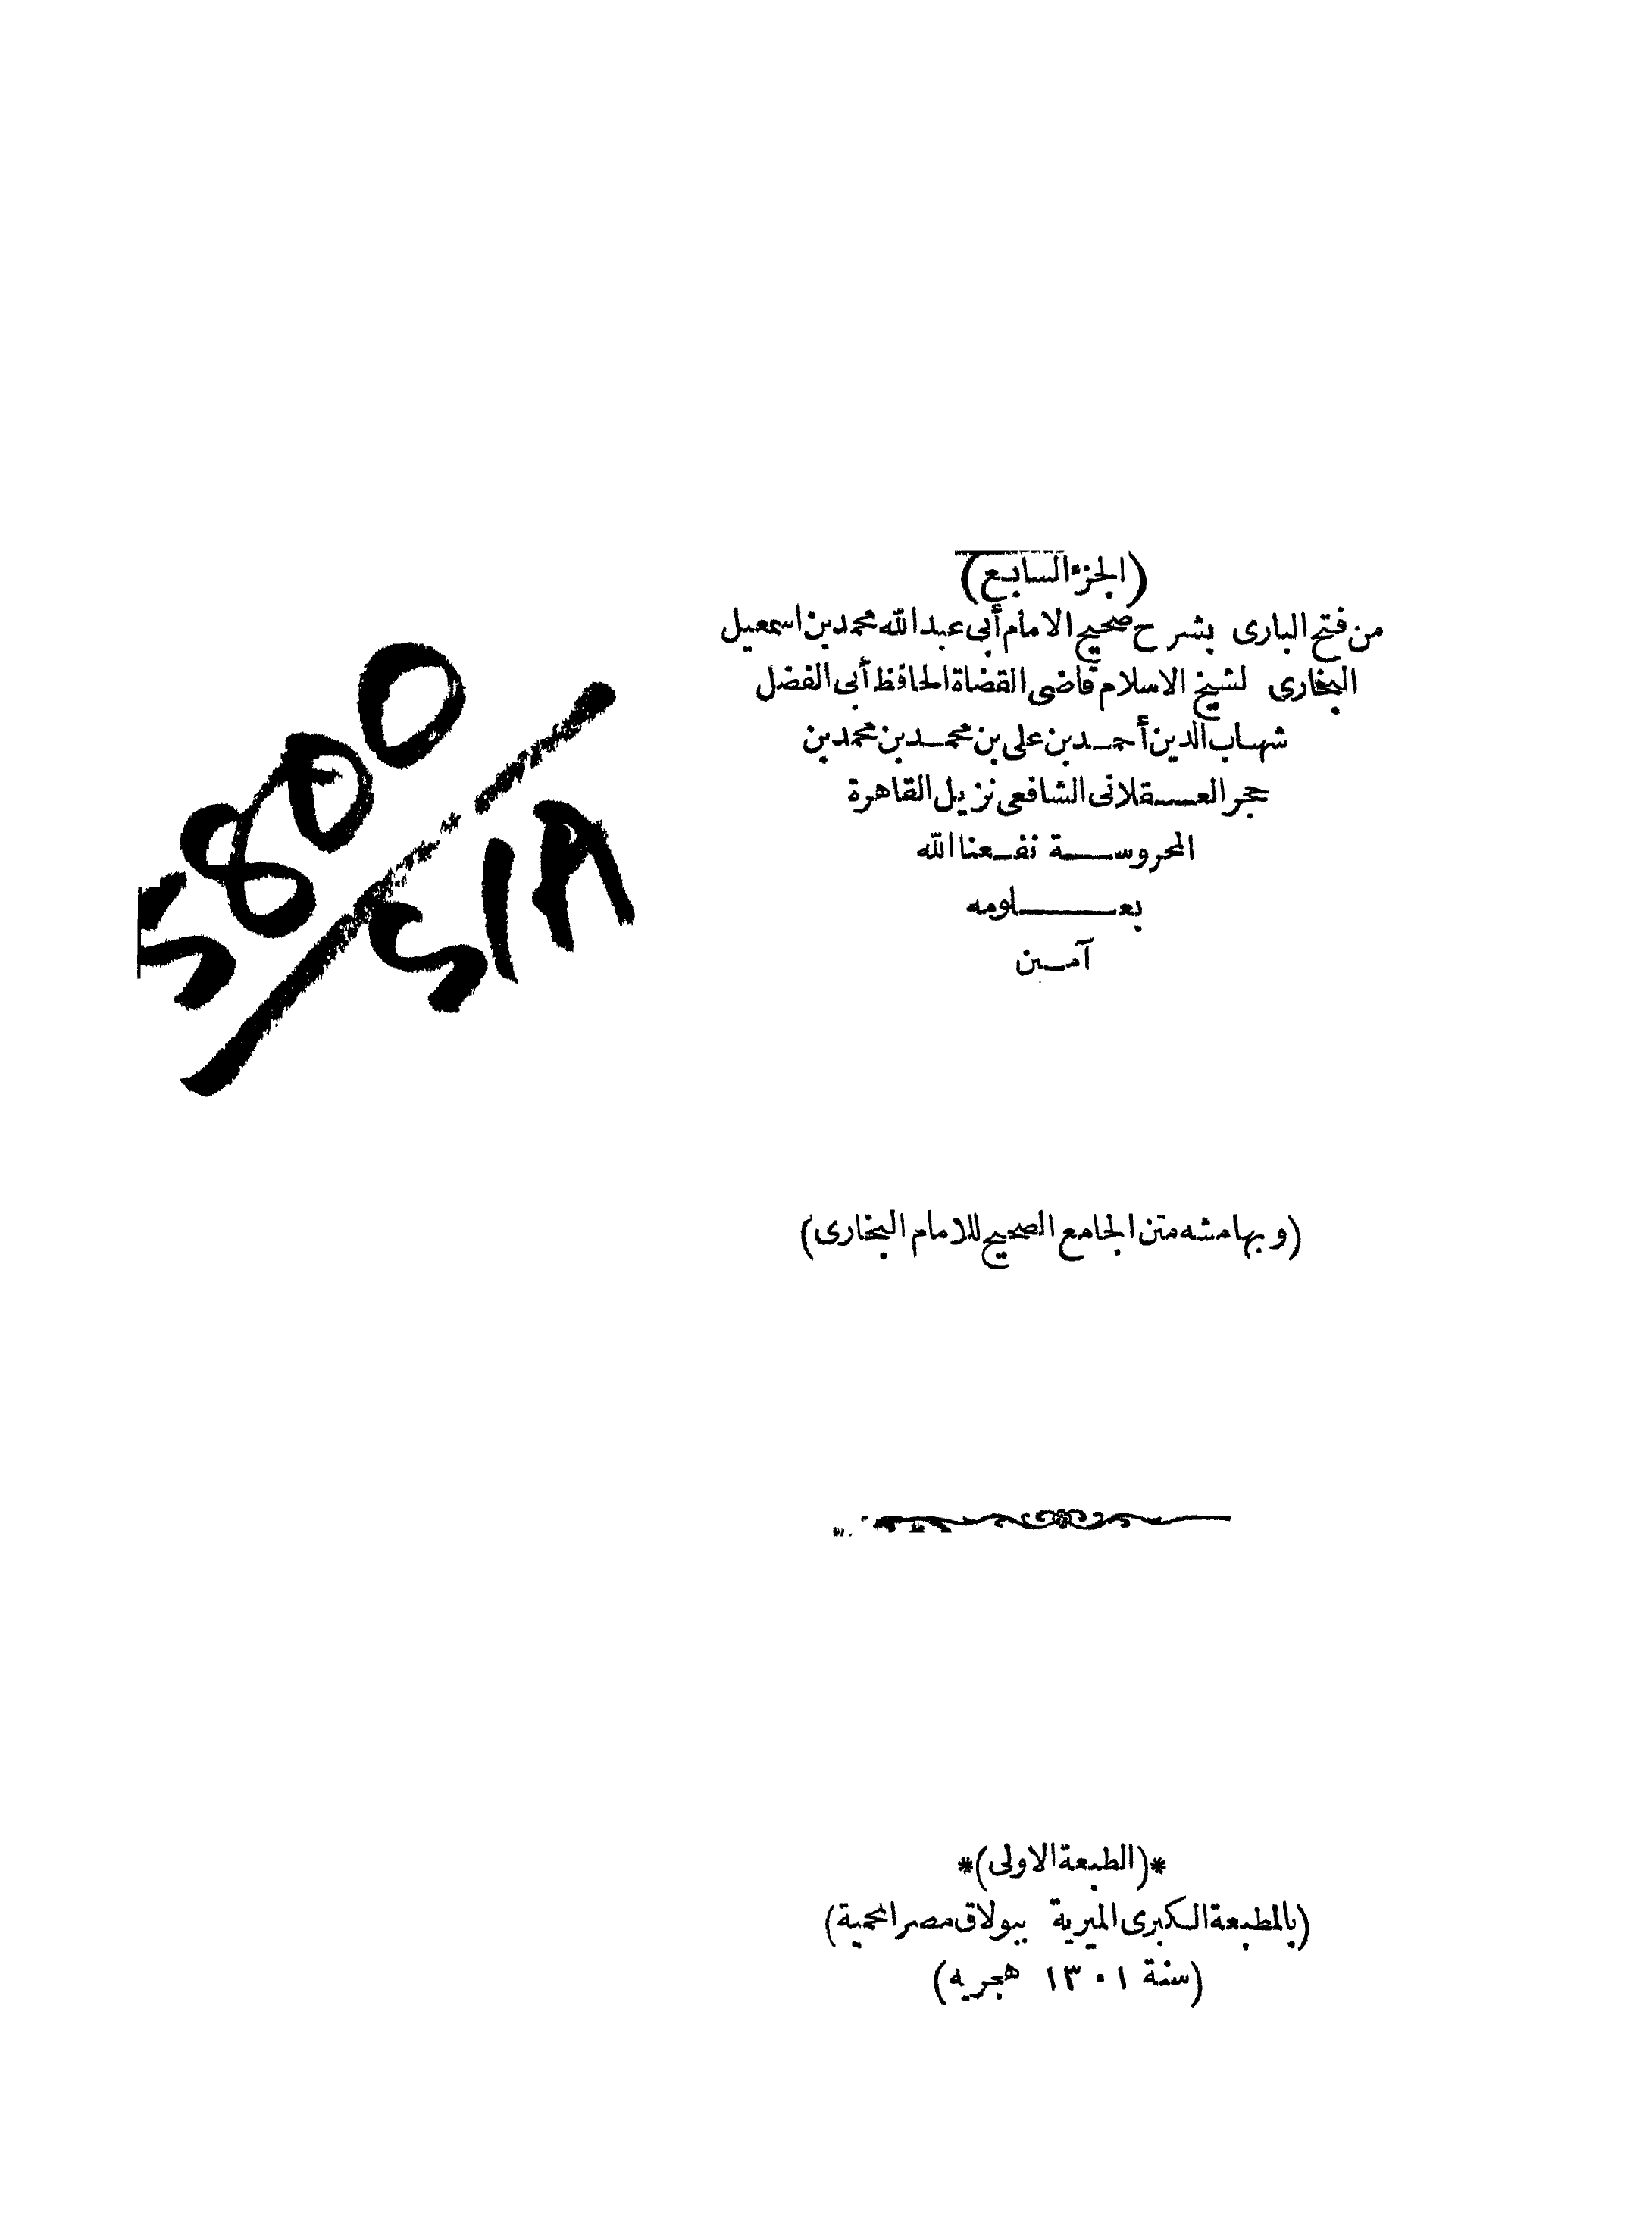 (الجزء السابع)
من فتح البارى بشرح صحيح الامام أبى عبد الله محمد بن اسمعيل
البخارى لشيخ الاسلام قاضى القضاة الحافظ أبى الفضل
شهاب الدين أحمد بن على بن محمد بن محمد بن
حجر العسقلانى الشافعى نزيل القاهرة
المحروسة نفعنا الله
بعلومه
آمين
5800
S/A
(وبهامشه متن الجامع الصحيح للامام البخارى)
*(الطبعة الاولى)*
(بالمطبعة الكبرى الميرية ببولاق مصر المحمية)
(سنة ١٣٠١ هجريه)